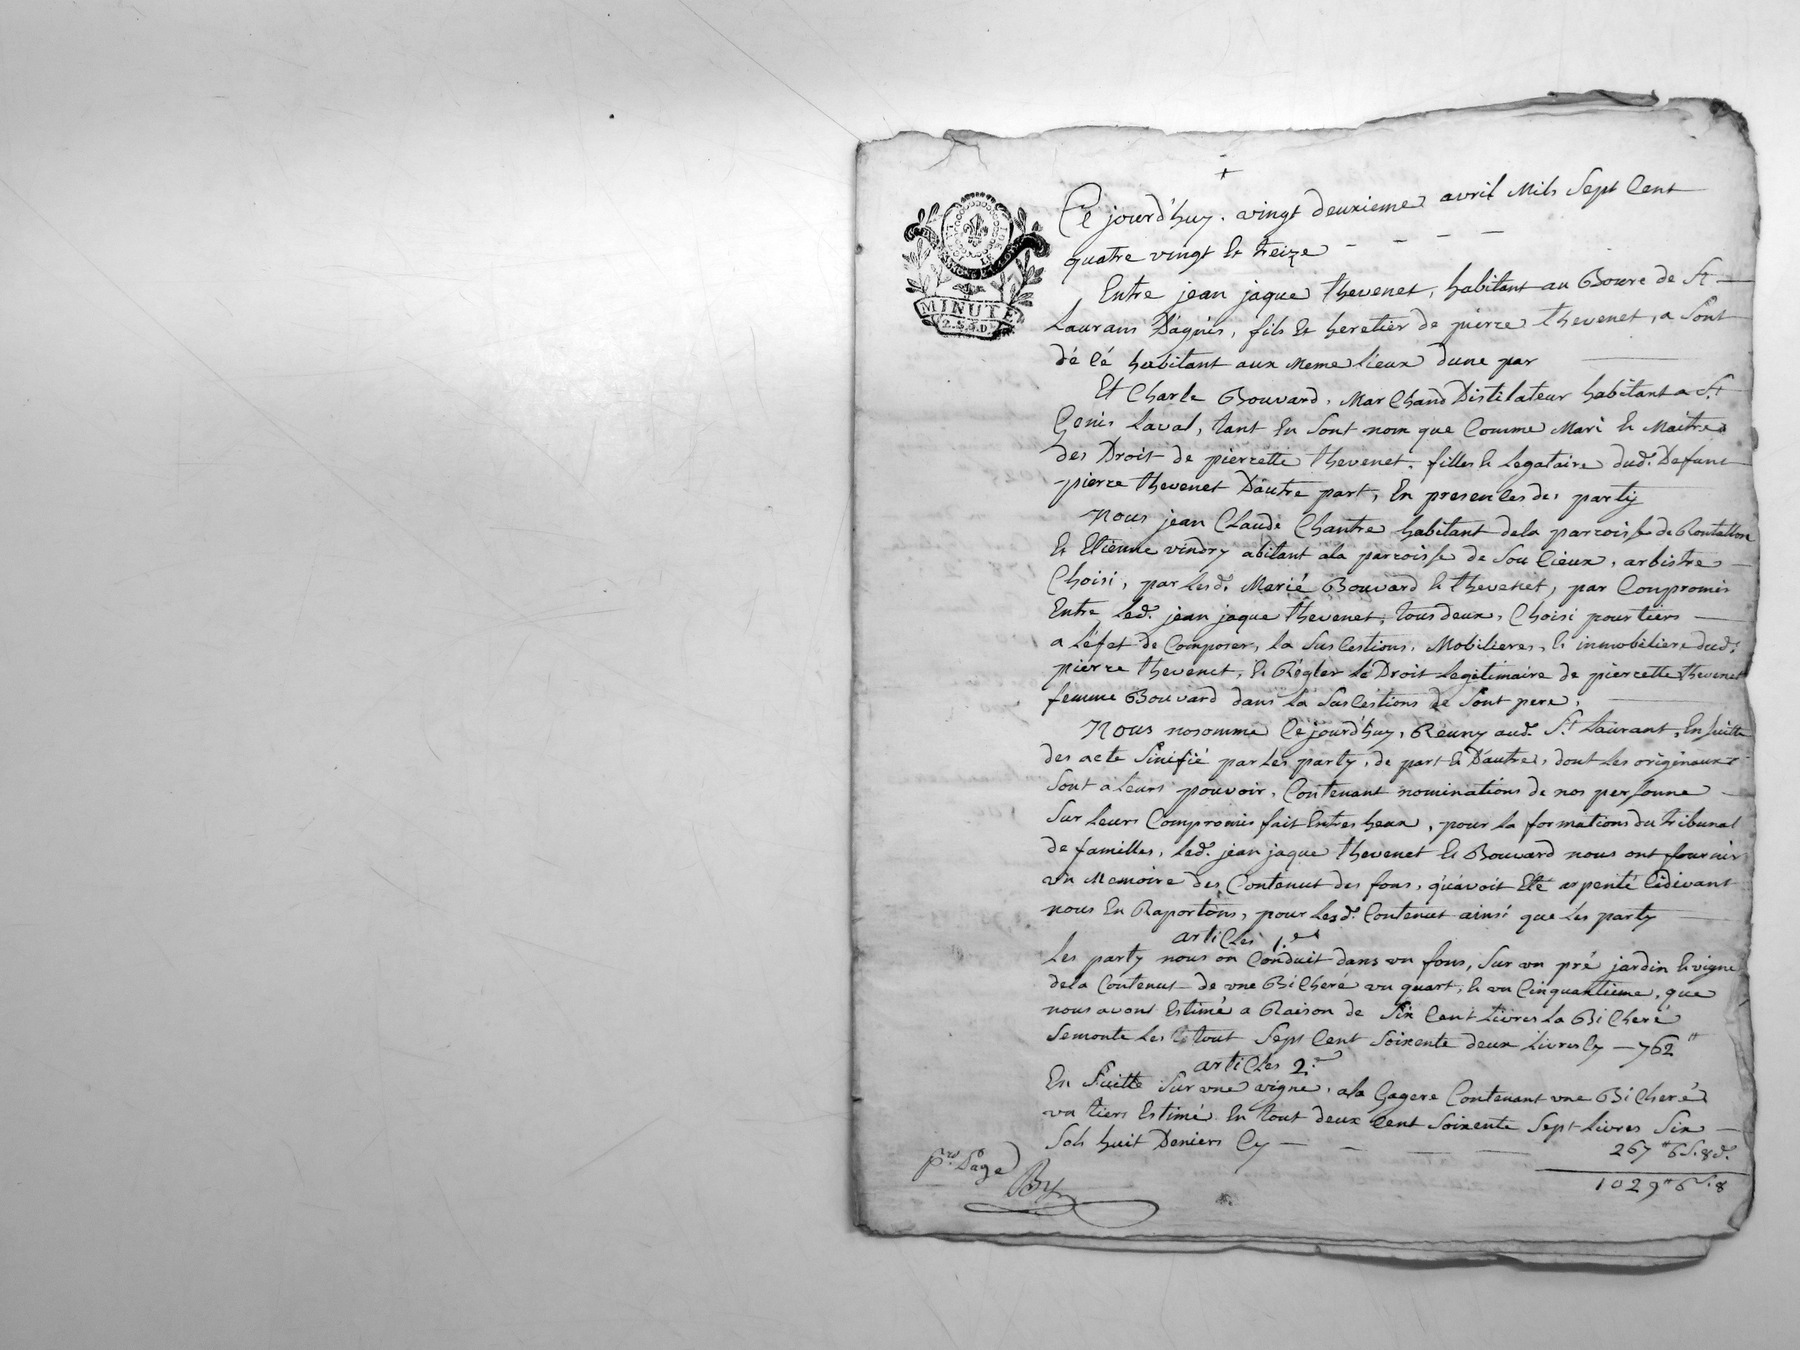 Ce jourd'huy. vingt deuxieme avril Mils Sept Cent
quatre vingt Et treize
Entre jean jaque thevenet, habitant au Bourc de St
Laurans D'agnis, fils Et heretier de pierre thevenet, a Sont
dé Cé habitant aux Meme Lieux dune par
Et Charle Bouvard, MarChand Distilateur habitant a St
Genis Laval, tant En Sont nom que Comme Mari Et Maitre
des Droit de pierrette thevenet. filles Et Legataire dud. Defunt
pierre thevenet D'autre part, En presences des party
Nous jean Claude Chantre habitant dela parroisse de Rontallon
Et Etienne vindry abitant ala parroisse de Soucieux, arbistre
Choisi, par Lesd. Marié Bouvard Et thevenet, par Compromis
Entre Led. jean jaque thevenet, tous deux, Choisi pour tiers
a L'éfet de Composer, la Suscestions, Mobilieres, Et inmobiliere dud.
pierre thevenet, Et Régler Le Droit Legitimaire de pierrette thevenet
femme Bouvard dans La Suscéstions de Sont pere,
Nous nosomme Ce jourd'huy, Réuny aud. St Laurant, En Suitte
des acte Sinifié par Les party, de part Et D'autre, dont Les originaux
Sont a Leurs pouvoir, Contenant nominations de nos personne
Sur Leurs Compromis fait Entres heux, pour La formations du tribunal
de familles, Led. jean jaque thevenet Et Bouvard nous ont fournir
un Memoire des Contenut des fons, qu'avoit Eté arpenté Cidivant
nous En Raportons, pour Lesd. Contenut ainsi que Les party
artiCles 1.er
Les party nous on Conduit dans un fons, Sur un pré jardin Et vigne
dela Contenut de une BiCheré un quart, Et un Cinquantieme, que
nous avont Estimé a Raison de Six Cent Livres La BiCheré
Semonte Les tout Sept Cent Soixente deux Livres Cy — 762"
artiCles 2.e
En Suitte Sur une vigne, ala Gagere Contenant une BiCheré
un tiers Estimé En tout deux Cent Soixente Sept Livres Six
Sols huit Deniers Cy — 267" 6 S. 8 d.
1029" 6 s. 8
p.re Page
MINUTE
2. S. 5. D.